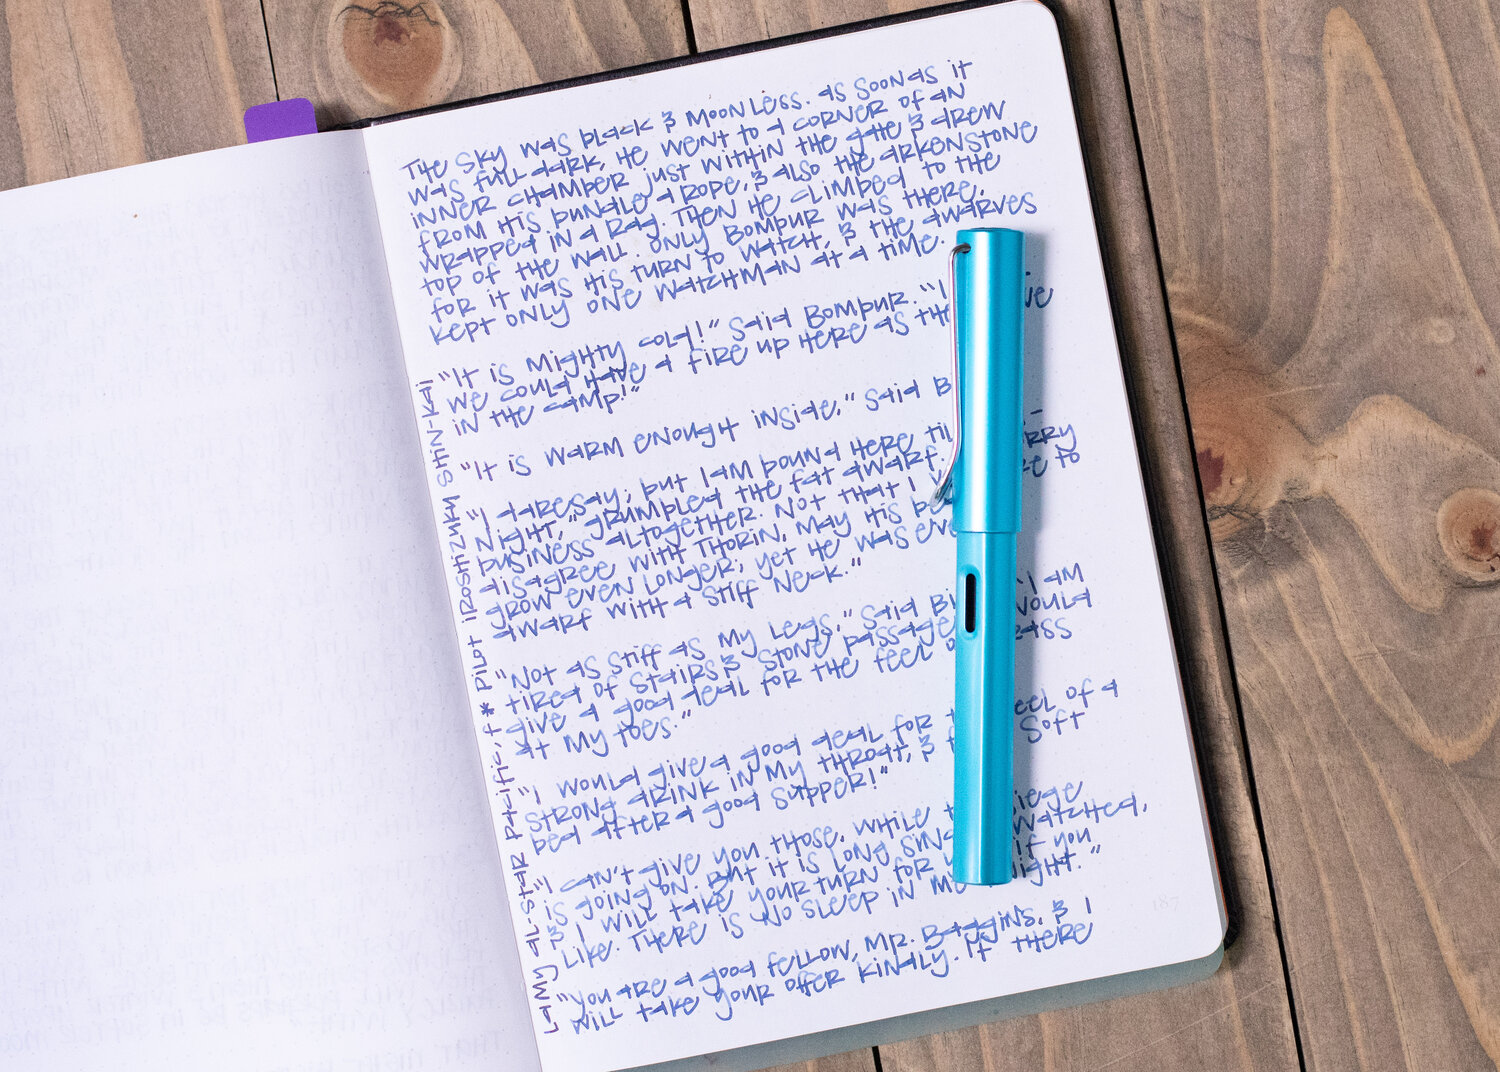 The sky was black & moonless. As soon as it
was full dark, he went to a corner of an
inner chamber just within the gate & drew
from his bundle a rope, & also the Arkenstone
wrapped in a rag. Then he climbed to the
top of the wall. Only Bombur was there,
for it was his turn to watch, & the dwarves
kept only one watchman at a time.
"It is mighty cold!" said Bombur. "I
we could have a fire up here as the
in the camp!"
"It is warm enough inside," said
"I daresay; but I am bound here
night," grumbled the fat dwarf.
business altogether. Not that I to
disagree with Thorin, may his
grow even longer; yet he was
dwarf with a stiff neck."
"Not as stiff as my legs," said "I am
tired of stairs & stone passages. would
give a good deal for the feel
at my toes."
"I would give a good deal for feel of a
strong drink in my throat, & soft
bed after a good supper!"
"I can't give you those, while siege
is going on. But it is long watched,
& I will take your turn for if you
like. There is no sleep in me night."
"You are a good fellow, Mr. Baggins, & I
will take your offer kindly. If there
Lamy AL-Star Pacific, f * Pilot Iroshizuku Shin-kai
187